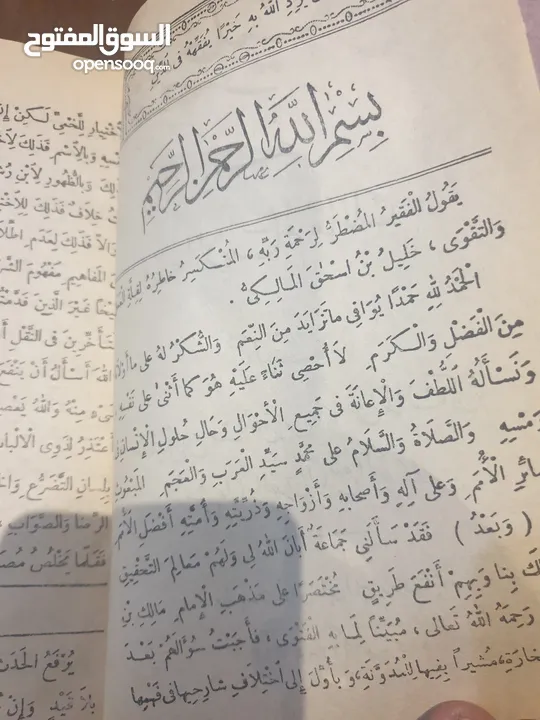 السوق المفتوح
opensooq.com
يرد الله به خيرا يفقهه في الدين
بِسْمِ اللهِ الرَّحْمٰنِ الرَّحِيمِ
يَقُولُ الْفَقِيرُ المُضْطَرُّ لِرَحْمَةِ رَبِّهِ ، المُنْكَسِرُ خَاطِرُهُ لِقِلَّةِ
وَالتَّقْوَى ، خَلِيلُ بْنُ اسْحٰقَ المَالِكِيُّ .
الْحَمْدُ لِلّهِ حَمْدًا يُوَافِي مَا تَزَايَدَ مِنَ النِّعَمِ وَالشُّكْرُ لَهُ عَلَى مَا أَوْلَانَا
مِنَ الْفَضْلِ وَالْكَرَمِ لَا أُحْصِي ثَنَاءً عَلَيْهِ هُوَ كَمَا أَثْنَى عَلَى نَفْسِهِ
وَنَسْأَلُهُ اللُّطْفَ وَالْإِعَانَةَ فِى جَمِيعِ الْأَحْوَالِ وَحَالِ حُلُولِ الْإِنْسَانِ
رَمْسِهِ وَالصَّلَاةُ وَالسَّلَامُ عَلَى مُحَمَّدٍ سَيِّدِ الْعَرَبِ وَالْعَجَمِ المَبْعُوثِ
سَائِرِ الْأُمَمِ وَعَلَى آلِهِ وَأَصحابِهِ وَأَزْوَاجِهِ وَذُرِّيَّتِهِ وَأُمَّتِهِ أَفْضَلِ الْأُمَمِ
( وَبَعْدُ ) فَقَدْ سَأَلَنِي جَمَاعَةٌ أَبَانَ اللهُ لِي وَلَهُمْ مَعَالِمَ التَّحْقِيقِ
بِنَا وَبِهِمْ أَنْفَعَ طَرِيقٍ مُخْتَصَرًا عَلَى مَذْهَبِ الْإِمَامِ مَالِكِ بْنِ
رَحِمَهُ اللهُ تَعَالَى ، مُبَيِّنًا لِمَا بِهِ الْفَتْوَى ، فَأَجَبْتُ سُؤَالَهُمْ بَعْدَ
مُشِيرًا بِفِيهَا لِلْمُدَوَّنَةِ ، وَبِأُوِّلَ إِلَى اخْتِلَافِ شَارِحِيهَا فِى فَهْمِهَا
لَكِنْ
وَبِالِاسْمِ فَذَلِكَ
وَبِالظُّهُورِ لِابْنِ
خِلَافٌ فَذَلِكَ
فَذَلِكَ لِعَدَمِ
المَفَاهِيمِ مَفْهُومَ
غَيْرَ الَّذِينَ
فِى النَّقْلِ
اللهَ أَسْأَلُ أَنْ يَنْفَعَ
مِنْهُ وَاللهُ
أَعْتَذِرُ لِذَوِى الْأَلْبَابِ
بِلِسَانِ التَّضَرُّعِ
الرِّضَا وَالصَّوَابِ
فَقَلَّمَا يَخْلُصُ
يُرْفَعُ الْحَدَثُ
بِلَا قَيْدٍ وَإِنْ